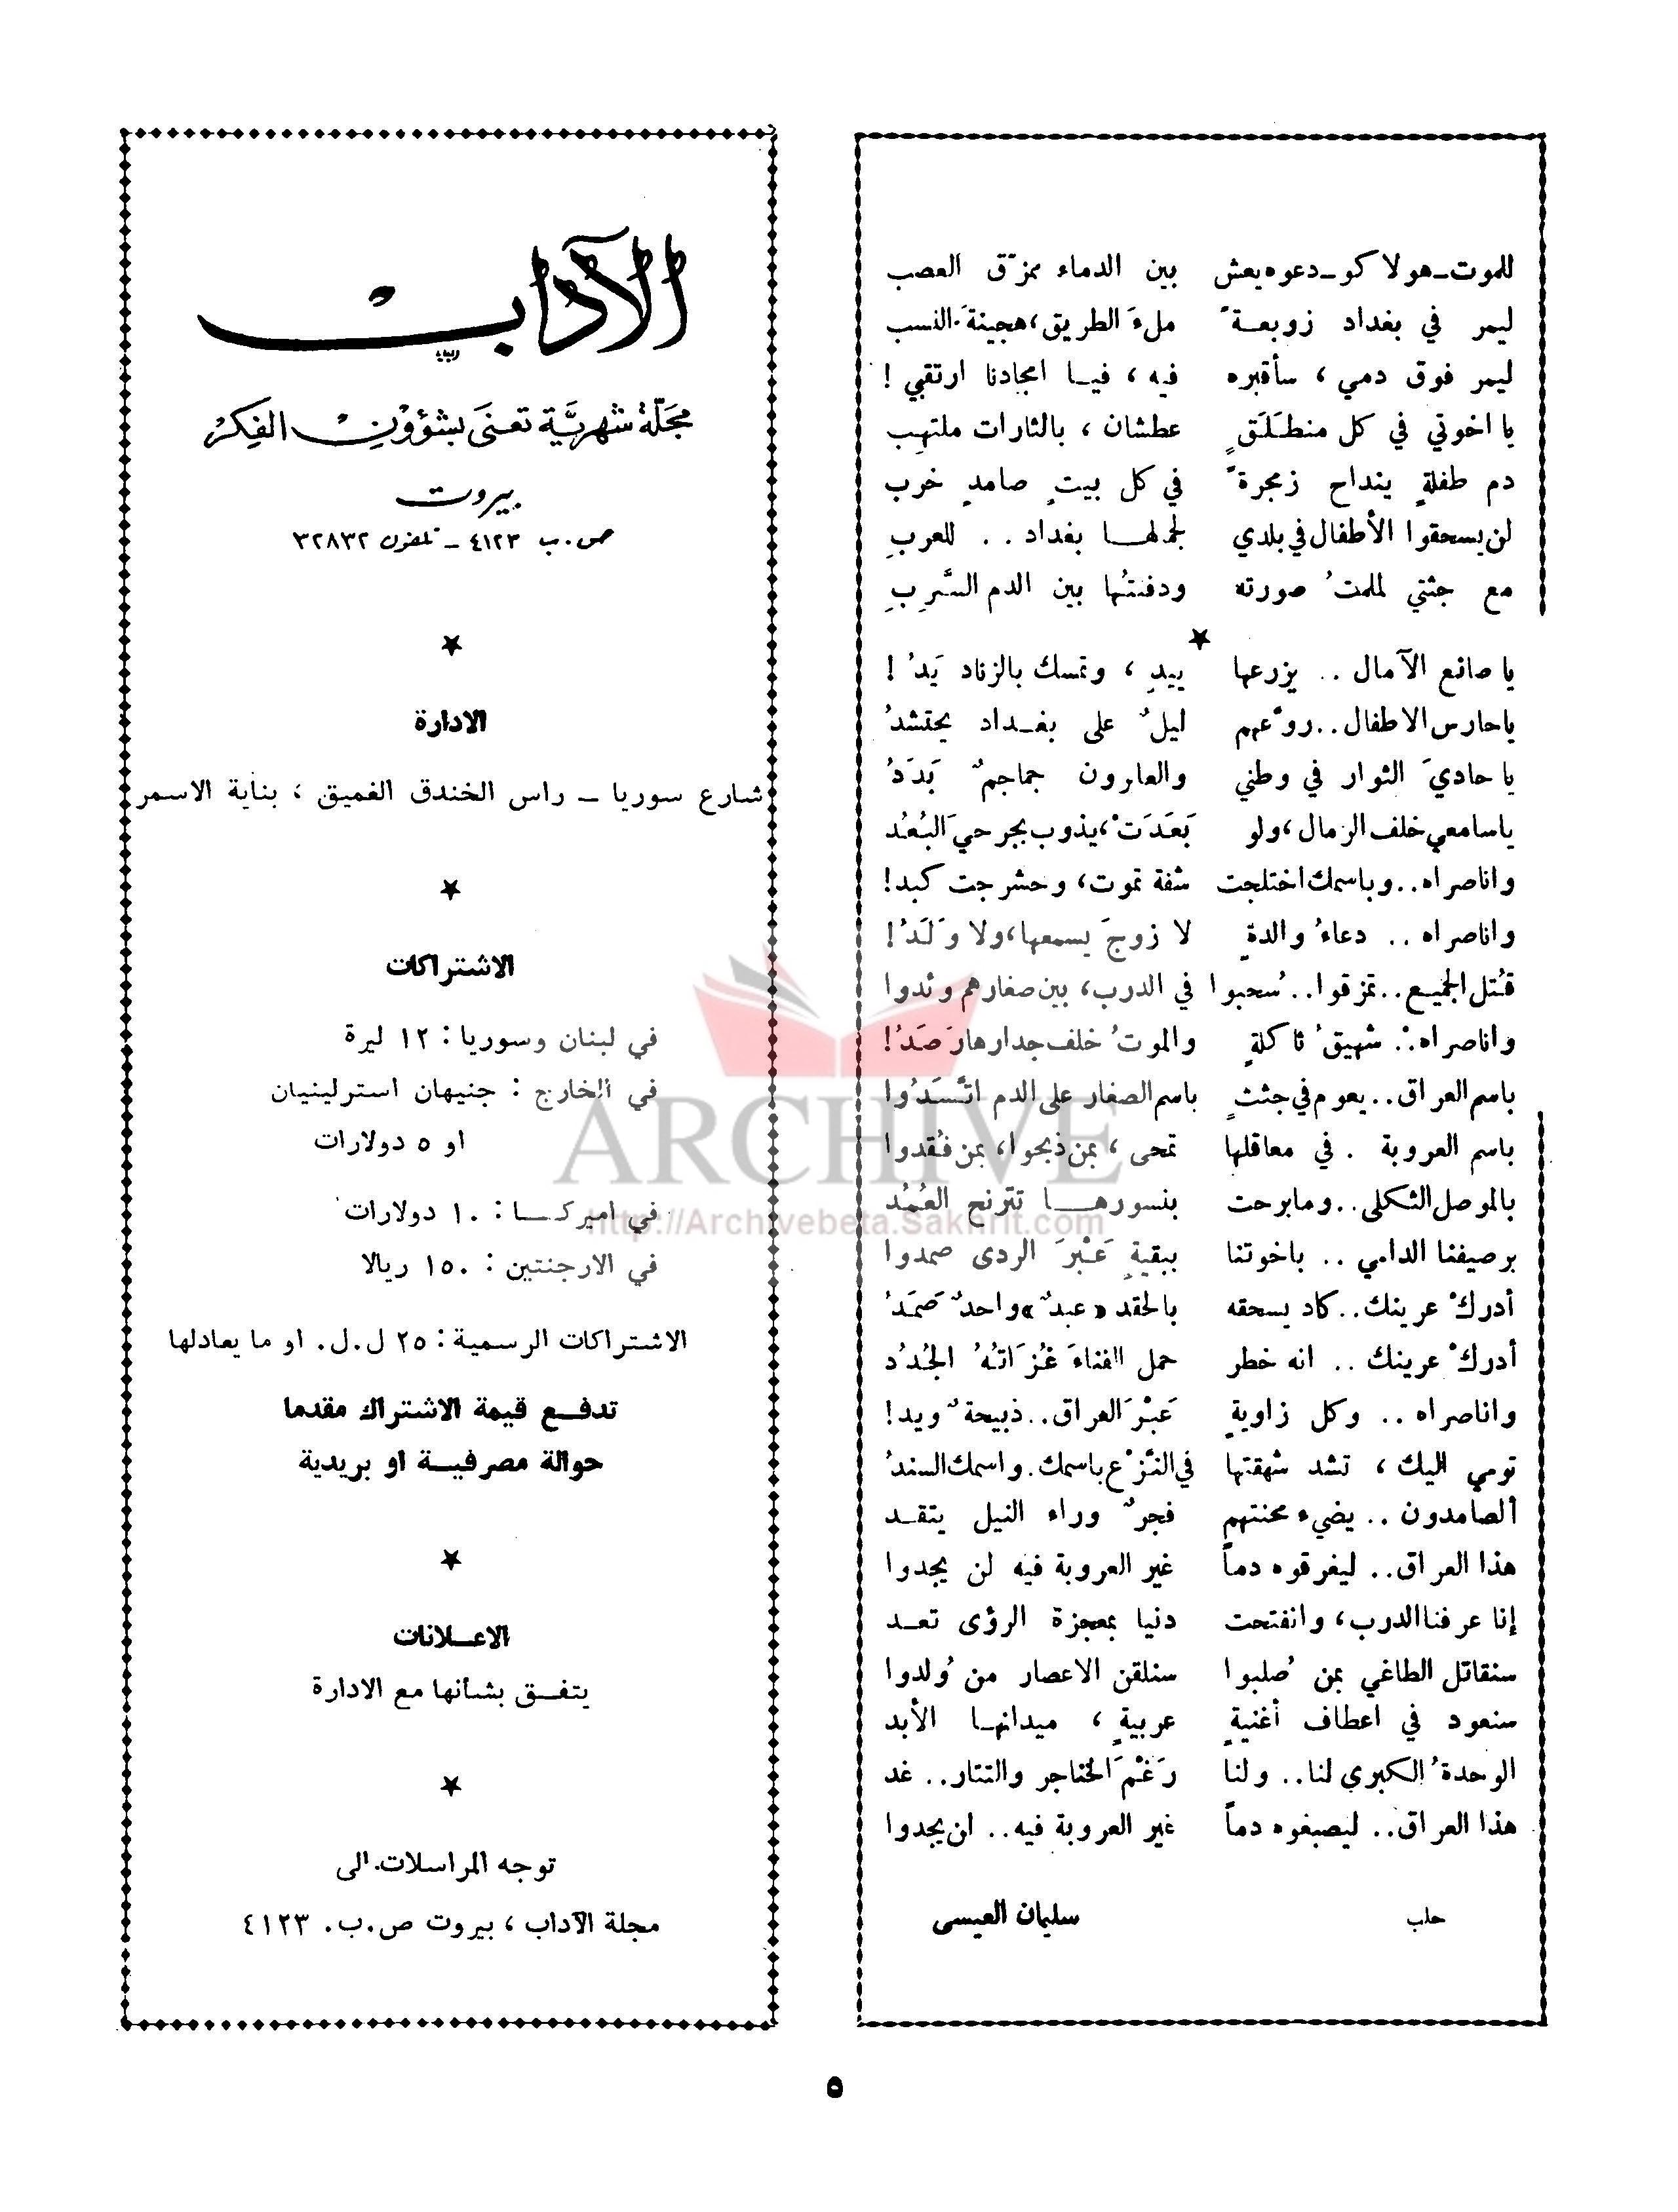 للموت ــ هولاكو ــ دعوه يعش بين الدماء ممزّق العصب
ليمر في بغداد زوبعةً ملءَ الطريق، هجينةَ النسب
ليمر فوق دمي، سأقبره فيه، فيا امجادنا ارتقبي!
يا اخوتي في كل منطلَقٍ عطشان، بالثارات ملتهِب
دم طفلةٍ ينداح زمجرةً في كل بيتٍ صامدٍ خرب
لن يسحقوا الأطفال في بلدي لجملها بغداد .. للعربِ
مع جثتي لملمتُ صورته ودفنتُها بين الدم السَّرِبِ
★
يا صانع الآمال .. يزرعها بيدٍ، وتمسك بالزناد يَدُ!
يا حارس الاطفال .. روّعهم ليلٌ على بغداد يحتشدُ
يا حاديَ الثوار في وطني والعابرون جماجمٌ بَدَدُ
يا سامعي خلف الرمال، ولو بَعَدَتْ، يذوب بجرحيَ البُعُد
واناصراه .. وباسمك اختلجت شفة تموت، وحشرجت كبد!
واناصراه .. دعاءُ والدةٍ لا زوجَ يسمعها، ولا وَلَدُ!
قُتل الجميع .. تمزقوا .. سُحبوا في الدرب، بين صغارهم وئدوا
واناصراه .. شهيقُ ثاكلةٍ والموتُ خلف جدارها رَصَدُ!
باسم العراق .. يعوم في جثثٍ باسم الصغار على الدم اتَّسَدُوا
باسم العروبة . في معاقلها تمحى، بمن ذبحوا، بمن فُقدوا
بالموصل الثكلى .. وما برحت بنسورها تترنح العُمُدُ
برصيفنا الدامي .. باخوتنا ببقيةٍ عَبْرَ الردى صمدوا
أدركْ عرينك .. كاد يسحقه بالحقد «عبدٌ» واحدٌ صَمَدُ
أدركْ عرينك .. انه خطر حمل الفناءَ غُزَاتهُ الجُدُد
واناصراه .. وكل زاويةٍ عَبْرَ العراق .. ذبيحةٌ ويد!
تومي اليك، تشد شهقتها في النَّزْع باسمك. واسمك السندُ
ألصامدون .. يضيء محنتهم فجرٌ وراء النيل يتقد
هذا العراق .. ليغرقوه دماً غير العروبة فيه لن يجدوا
إنا عرفنا الدرب، وانفتحت دنيا بمعجزة الرؤى تعد
سنقاتل الطاغي بمن صُلبوا سنلقن الاعصار من وُلدوا
سنعود في اعطاف أغنيةٍ عربيةٍ، ميدانها الأبد
الوحدةُ الكبرى لنا .. ولنا رَغْمَ الخناجر والتتار .. غد
هذا العراق .. ليصبغوه دماً غير العروبة فيه .. لن يجدوا
حلب سليمان العيسى
الآداب
مجَلّة شهريَّة تعنَى بشؤوْن الفِكر
بيروت
ص.ب ٤١٢٣ ــ تلفون ٣٢٨٣٢
★
الادارة
شارع سوريا ــ راس الخندق الغميق، بناية الاسمر
★
الاشتراكات
في لبنان وسوريا: ١٢ ليرة
في الخارج: جنيهان استرلينيان
او ٥ دولارات
في اميركا: ١٠ دولارات
في الارجنتين: ١٥٠ ريالا
الاشتراكات الرسمية: ٢٥ ل.ل. او ما يعادلها
تدفع قيمة الاشتراك مقدما
حوالة مصرفية او بريدية
★
الاعلانات
يتفق بشأنها مع الادارة
★
توجه المراسلات الى
مجلة الآداب، بيروت ص.ب. ٤١٢٣
ARCHIVE
http://Archivebeta.Sakhrit.com
٥